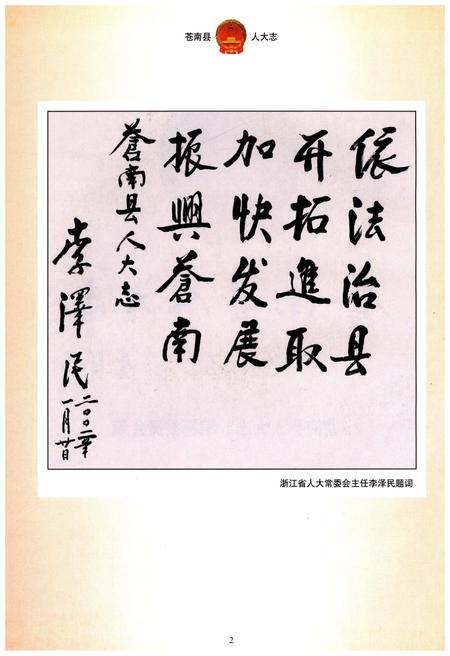 苍南县 人大志
依法治县
开拓進取
加快发展
振興蒼南
蒼南县人大志
李澤民
二〇〇二年
一月廿日
浙江省人大常委会主任李泽民题词
2